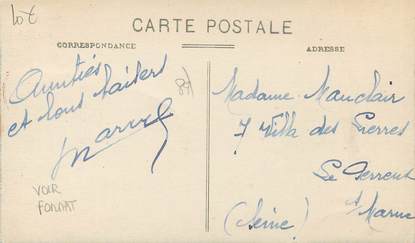 Lot
CARTE POSTALE
CORRESPONDANCE
ADRESSE
Amitiés
et bons baisers
Marcel
VOIR
FORMAT
Madame Mauclair
7 Villa des Pierres
Le Perreux
s/ Marne
(Seine)